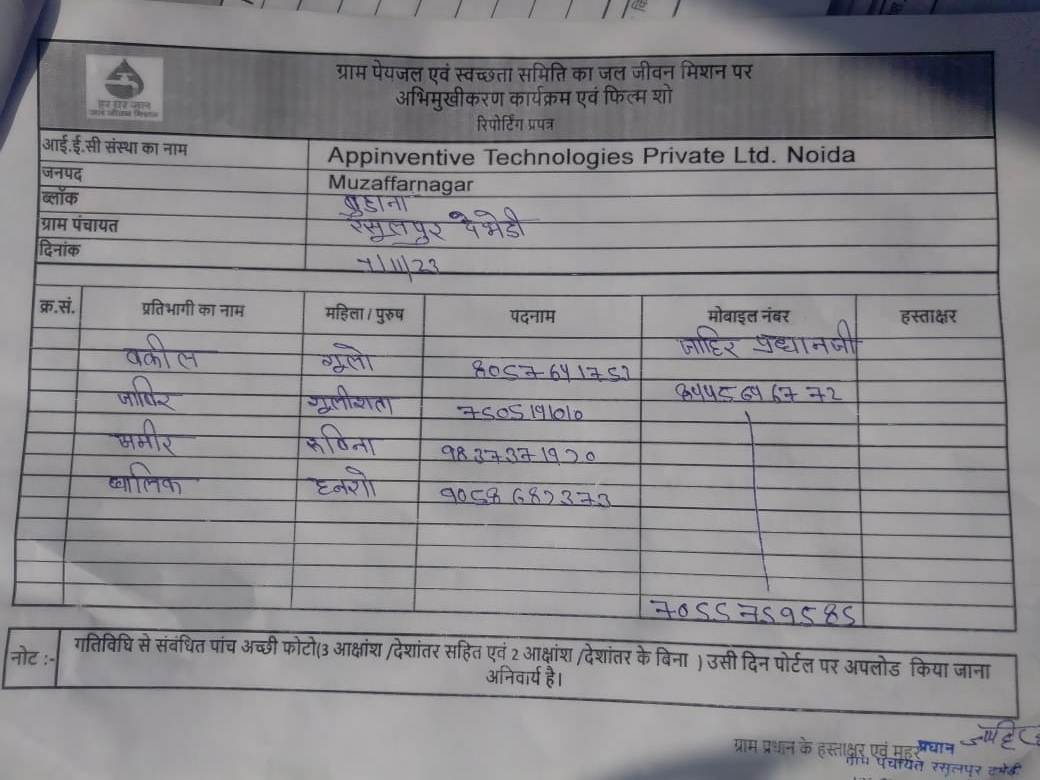 हर घर जल
जल जीवन मिशन
ग्राम पेयजल एवं स्वच्छता समिति का जल जीवन मिशन पर
अभिमुखीकरण कार्यक्रम एवं फिल्म शो
रिपोर्टिंग प्रपत्र
आई.ई.सी संस्था का नाम Appinventive Technologies Private Ltd. Noida
जनपद Muzaffarnagar
ब्लॉक बुढाना
ग्राम पंचायत रसूलपुर दभेडी
दिनांक 7/11/23
क्र.सं. प्रतिभागी का नाम महिला / पुरुष पदनाम मोबाइल नंबर हस्ताक्षर
जाहिर प्रधानजी
वकील गुलो
जाबिर 7505191010
8445646772
समीर रुबिना
9058682373
7055759585
नोट :- गतिविधि से संबंधित पांच अच्छी फोटो(3 आक्षांश /देशांतर सहित एवं 2 आक्षांश /देशांतर के बिना ) उसी दिन पोर्टल पर अपलोड किया जाना
अनिवार्य है।
ग्राम प्रधान के हस्ताक्षर एवं मुहर प्रधान
ग्राम पंचायत रसूलपुर दभेडी